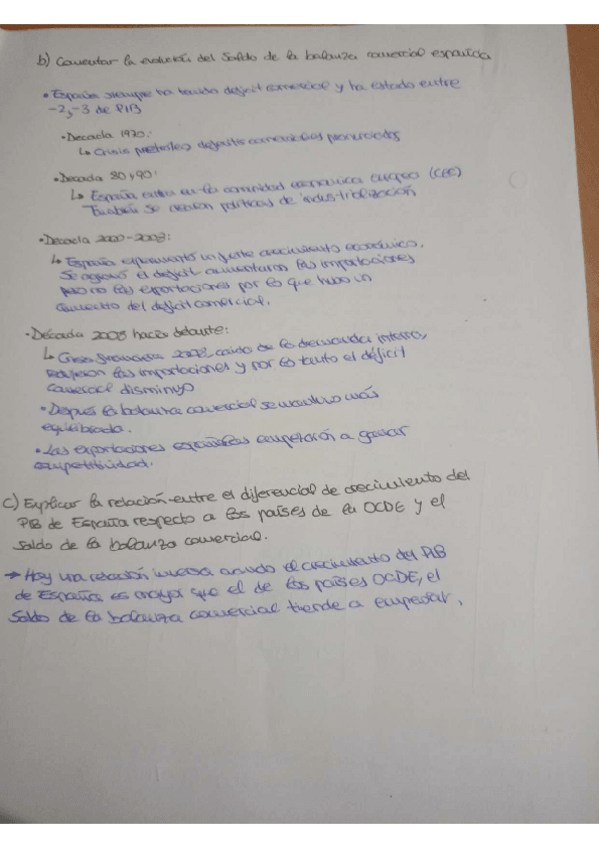 b) Comentar la evolución del saldo de la balanza comercial española
• España siempre ha tenido déficit comercial y ha estado entre
-2,-3 de PIB
• Decada 1970:
↳ Crisis petróleo, déficits comerciales pronunciados
• Decada 80 y 90:
↳ España entra en la comunidad económica europea (CEE)
También se crearon políticas de industrialización
• Decada 2000-2008:
↳ España experimentó un fuerte crecimiento económico.
Se agravó el deficit aumentaron las importaciones
pero no las exportaciones por lo que hubo un
aumento del deficit comercial.
• Década 2008 hacia delante:
↳ Crisis financiera 2008, caida de la demanda interna,
redujeron las importaciones y por lo tanto el déficit
comercial disminuyo
• Depués la balanza comercial se mantuvo más
equilibrada.
• Las exportaciones españolas empezaron a ganar
competitividad.
C) Explicar la relación entre el diferencial de crecimiento del
PIB de España respecto a los países de la OCDE y el
saldo de la balanza comercial.
→ Hay una relación inversa cuando el crecimiento del PIB
de España es mayor que el de los países OCDE, el
saldo de la balanza comercial tiende a empeorar.